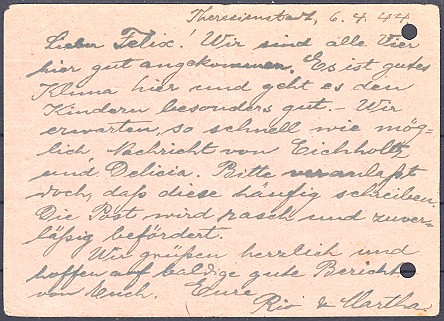 Theresienstadt, 6.4.44
Lieber Felix! Wir sind alle Vier
hier gut angekommen. Es ist gutes
Klima hier und geht es den
Kindern besonders gut. – Wir
erwarten, so schnell wie mög-
lich Nachricht von Eichholtz
und Delicia. Bitte veranlaßt
doch, daß diese häufig schreiben.
Die Post wird rasch und zuver-
läßig befördert.
Wir grüßen herzlich und
hoffen auf baldige gute Berichte
von Euch. Eure
Rio & Martha.